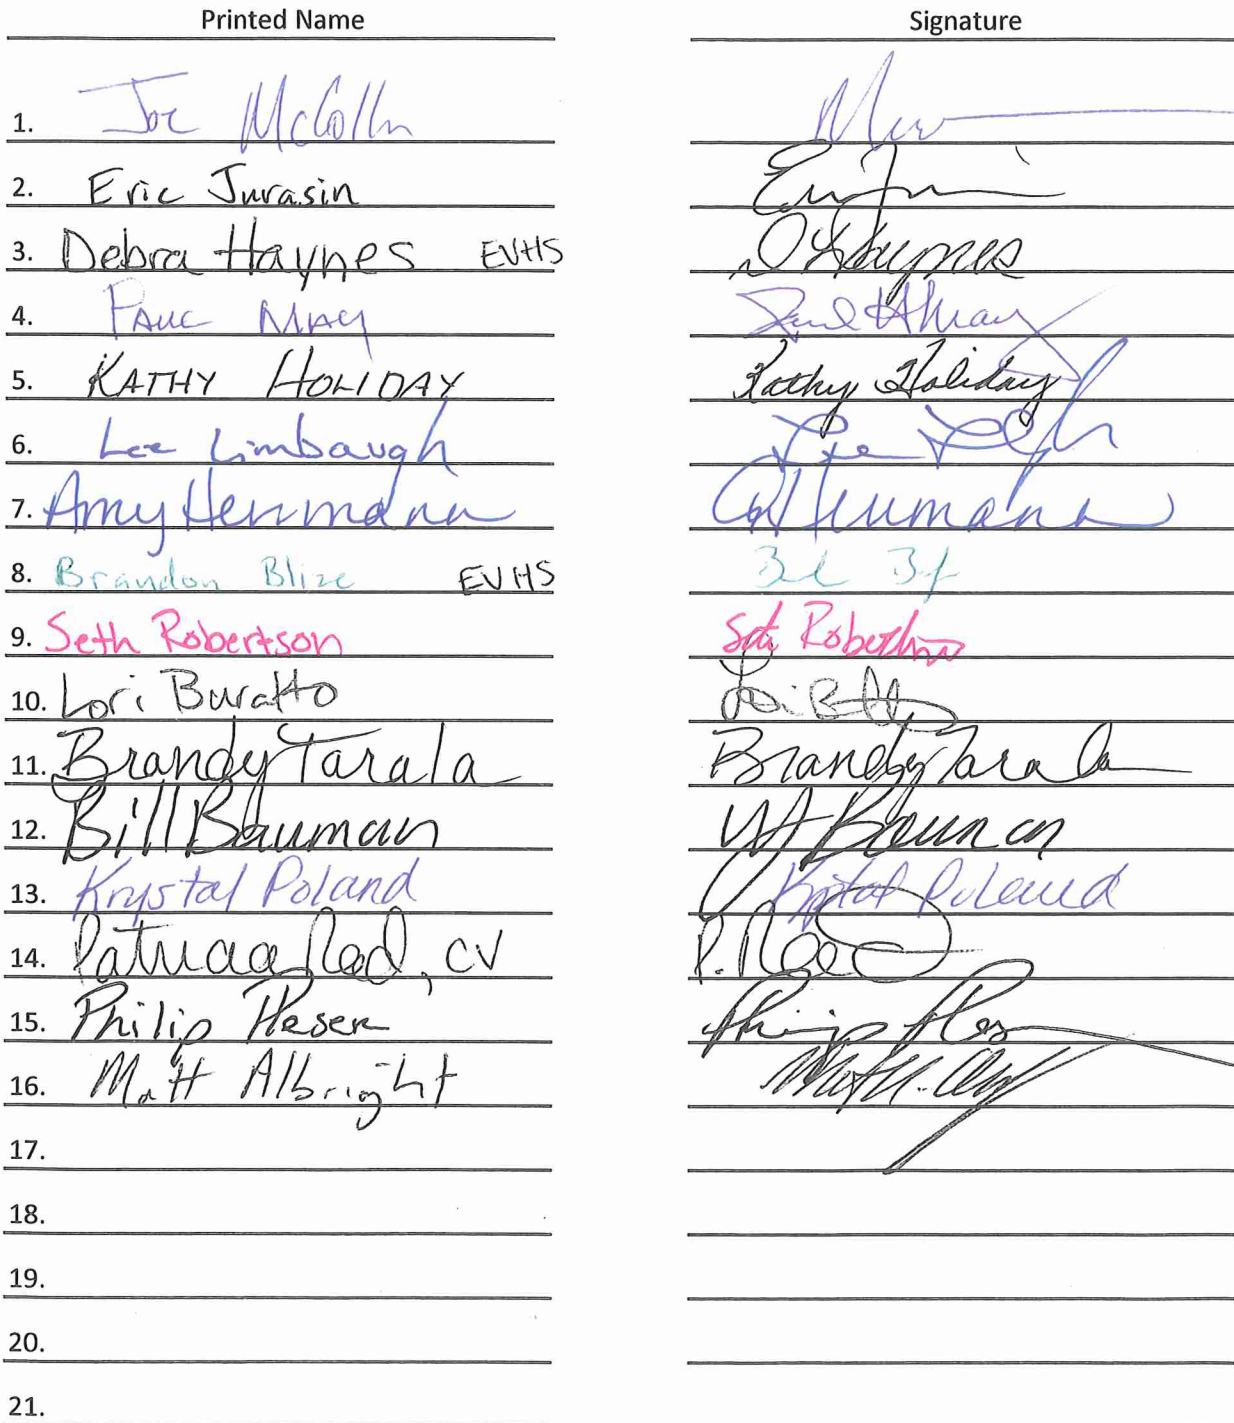 Printed Name Signature
1. Joe McCollm
2. Eric Jurasin
3. Debra Haynes EVHS DL Haynes
4. Paul May Paul H May
5. KATHY HOLIDAY Kathy Holiday
6. Lee Limbaugh
7. Amy Herrmann A Herrmann
8. Brandon Blize EVHS
9. Seth Robertson Seth Robertson
10. Lori Buratto
11. Brandy Tarala Brandy Tarala
12. Bill Bauman Bauman
13. Krystal Poland Krystal Poland
14. Patricia Reed, CV P. Reed
15. Philip Pleser Philip
16. Matt Albright
17.
18.
19.
20.
21.